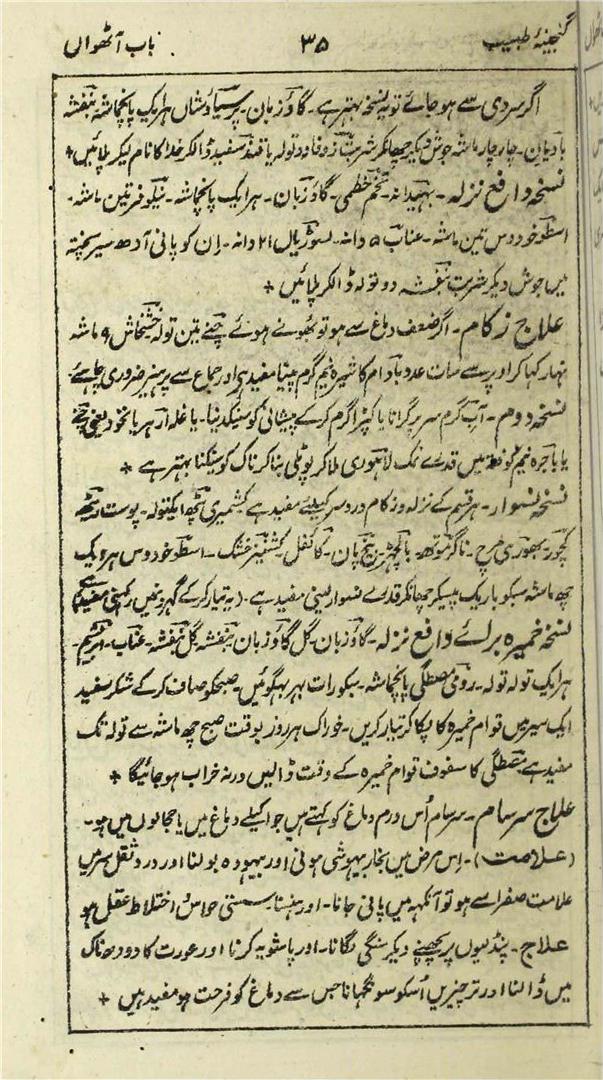 گنجینۂ طبیب
۳۵
باب آٹھواں
اگر سردی سے ہو جائے تو یہ نسخہ بہتر ہے۔ گاؤزبان۔ پرسیاؤشاں ہر ایک پانچماشہ بنفشہ
بادیان۔ چار چار ماشہ جوش دیکر چھانکر شربت زوفا دو تولہ یا قند سفید ڈالکر خدا کا نام لیکر پلائیں +
نسخہ دافع نزلہ۔ بہیدانہ۔ تخم خطمی۔ گاؤزبان۔ ہر ایک پانچماشہ۔ نیلوفر تین ماشہ۔
اسطوخودوس تین ماشہ۔ عناب ۵ دانہ۔ لسوڑیاں ۲۱ دانہ۔ ان کو پانی آدھ سیر پختہ
میں جوش دیکر شربت بنفشہ دو تولہ ڈالکر پلائیں +
علاج زکام۔ اگر ضعف دماغ سے ہو تو بھونے ہوئے چنے تین تولہ خشخاش ۹ ماشہ
نہار کہا کر اوپر سے سات عدد بادام کا شیرہ نیم گرم پینا مفید ہے اور جماع سے پرہیز ضروری چاہئے
نسخہ دوم۔ آب گرم سر پر گرانا یا کپڑا گرم کرکے پیشانی کو سینکدینا۔ یا غلہ ارہر یا نخود یعنی چنے
یا باجرہ نیم کوفتہ میں قدرے نمک لاہوری ملا کر پوٹلی بنا کر ناک کو سینکنا بہتر ہے +
نسخہ نسوار۔ ہر قسم کے نزلہ و زکام درد سر کیلئے مفید ہے کشمیری پٹھ ایکتولہ۔ پوست ریٹھہ
کچور۔ بھوری مرچ۔ ناگرموتھہ۔ بالچھڑ۔ بیخ پان۔ کائفل۔ کشنیز خشک۔ اسطوخودوس ہر ایک
چھ ماشہ سبکو باریک پیسکر چھانکر قدرے نسوار لینی مفید ہے۔ (یہ تیار کرکے گہرونمیں رکہنی مفید ہے)
نسخہ خمیرہ برائے دافع نزلہ۔ گاؤزبان۔ گل گاؤزبان بنفشہ گل بنفشہ۔ عناب۔ ابریشم۔
ہر ایک تولہ تولہ۔ رومی مصطگی پانچماشہ۔ سبکو رات بہر بہگوئیں۔ صبحکو صاف کرکے شکر سفید
ایک سیر میں قوام خمیرہ کا پکا کر تیار کریں۔ خوراک ہر روز بوقت صبح چھ ماشہ سے تولہ تک
مفید ہے مصطگی کا سفوف قوام خمیرہ کے وقت ڈالیں ورنہ خراب ہو جائیگا +
علاج سرسام۔ سرسام اُس ورم دماغ کو کہتے ہیں جو اکیلے دماغ میں یا حجابوں میں ہو۔
(علامت)۔ اس مرض میں بخار بیہوشی ہونی اور بیہودہ بولنا اور درد ثقل سر میں
علامت صفرا سے ہو تو آنکہہ میں پانی جانا۔ اور ہنسنا۔ سستی حواس اختلاط عقل ہو
علاج۔ پنڈلیوں پر پچھنے دیکر سنگی لگانا۔ اور پاشویہ کرنا اور عورت کا دودھ ناک
میں ڈالنا اور تر چیزیں اُسکو سونگہانا جس سے دماغ کو فرحت ہو مفید ہیں +